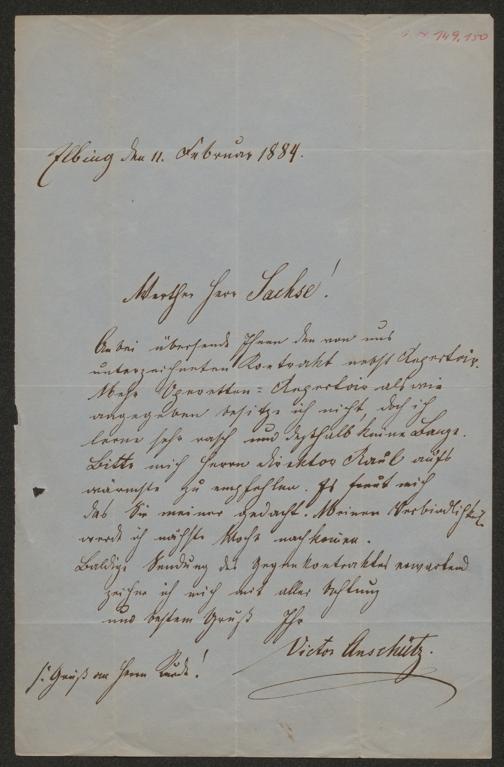 149.150
Elbing den 11. Februar 1884.
Werther Herr Sachse!
Anbei übersende Ihnen den von uns
unterzeichneten Kontrakt nebst Repertoir.
Mehr Operetten=Repertoir als wie
angegeben besitze ich nicht, doch ich
lerne sehr rasch und deßhalb keine Bange.
Bitte mich Herrn Direktor Raul aufs
wärmste zu empfehlen. Es freut mich
das Sie meiner gedacht. Meinen Verbindlichk.
werde ich nächste Woche nachkommen.
Baldige Sendung des Gegenkontraktes erwartend
zeichne ich mich mit aller Achtung
und bestem Gruß Ihr
Victor Anschütz.
Gruß an Herrn